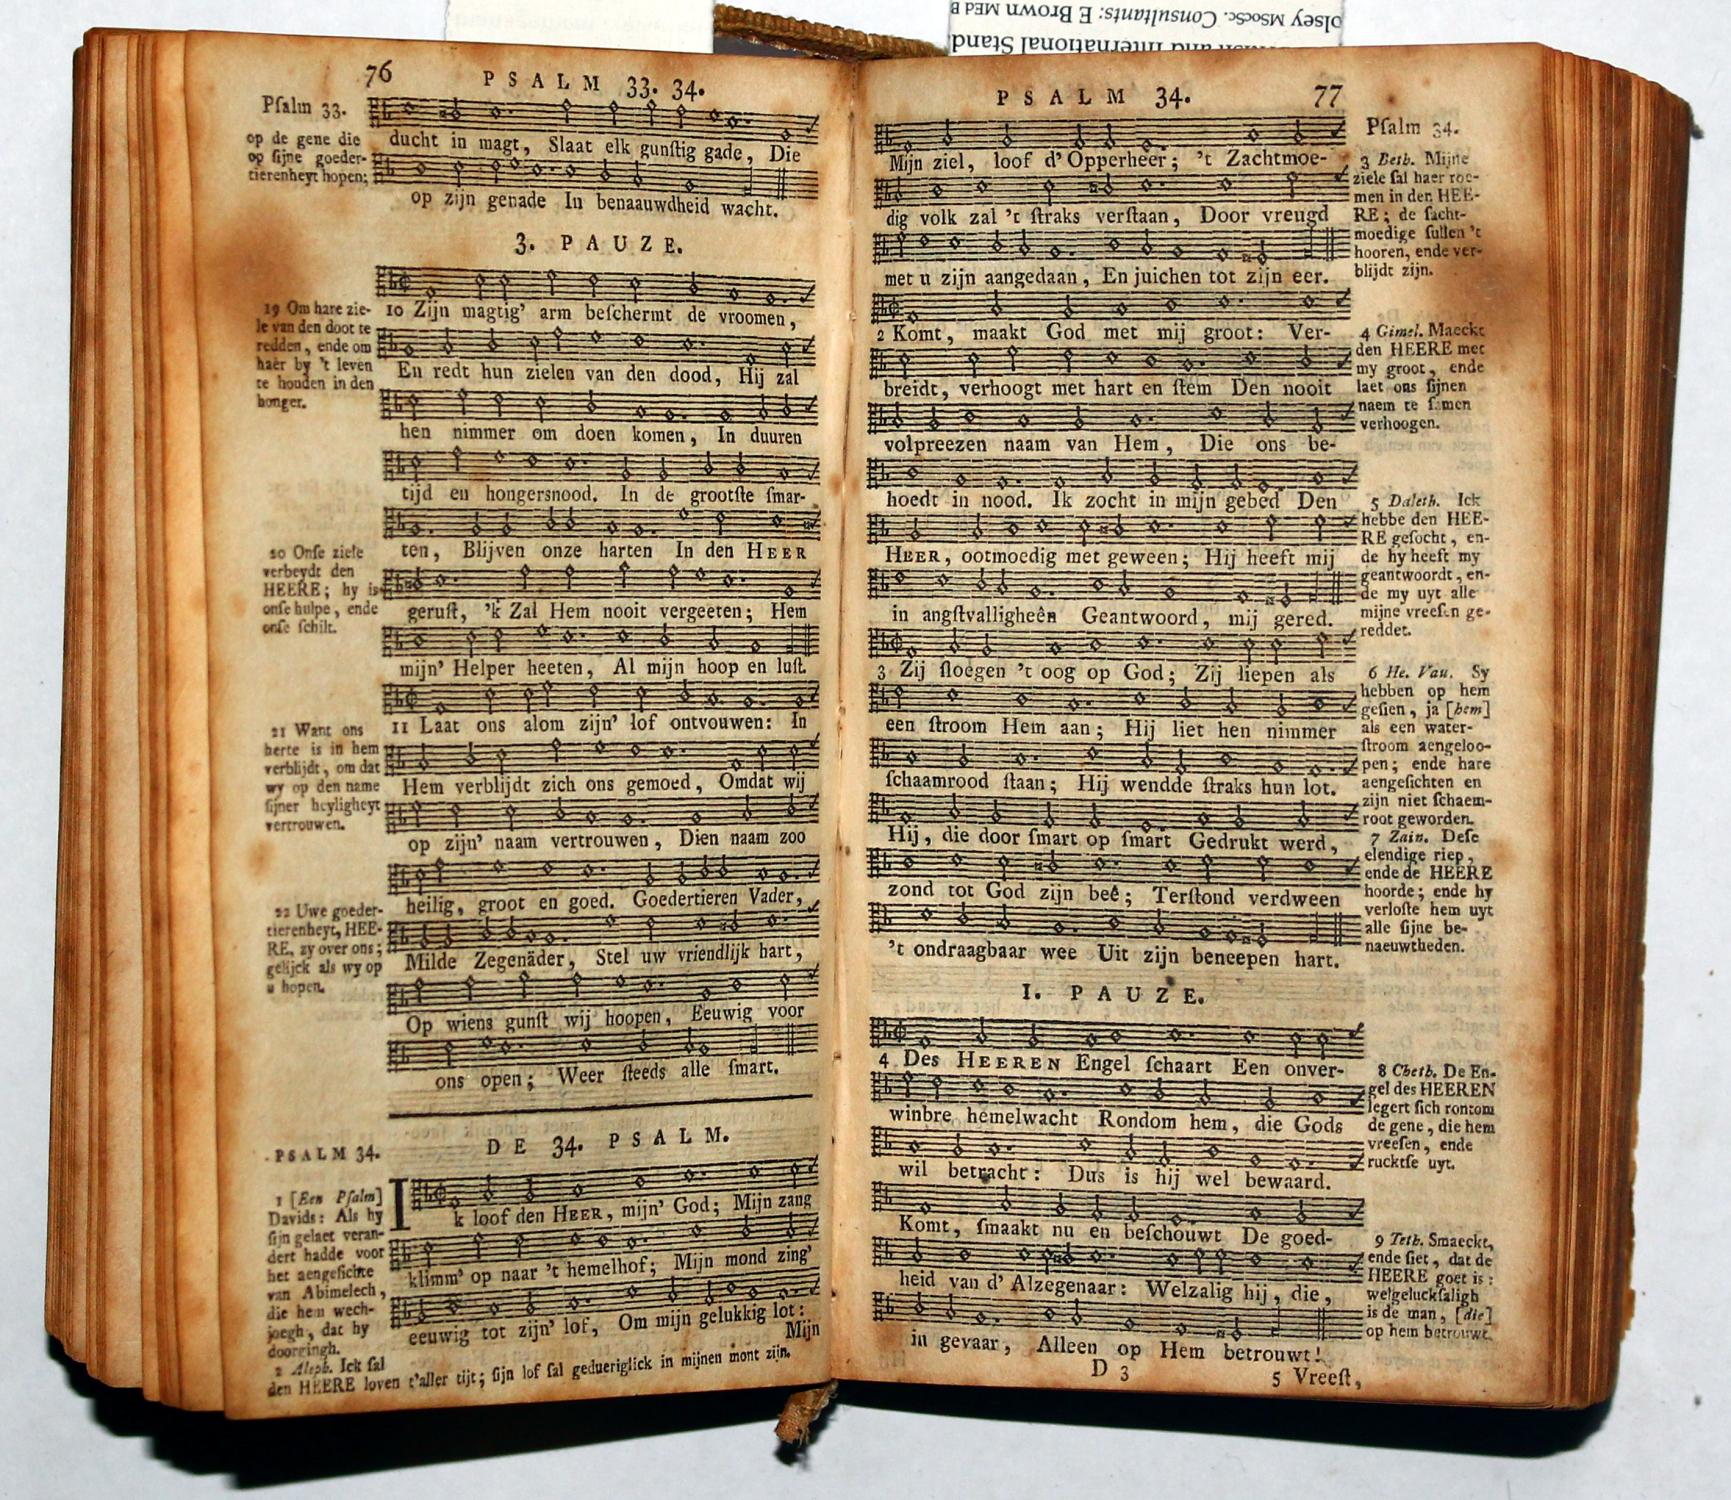 olsey MSocSc. Consultants: E Brown MED B
and International Stand
76
PSALM 33. 34.
Pſalm 33.
op de gene die
op ſijne goeder-
tierenheyt hopen;
ducht in magt, Slaat elk gunſtig gade, Die
op zijn genade In benaauwdheid wacht.
3. PAUZE.
19 Om hare zie-
le van den doot te
redden, ende om
haer by 't leven
te houden in den
honger.
10 Zijn magtig' arm beſchermt de vroomen,
En redt hun zielen van den dood, Hij zal
hen nimmer om doen komen, In duuren
tijd en hongersnood. In de grootſte ſmar-
20 Onſe ziele
verbeydt den
HEERE; hy is
onſe hulpe, ende
onſe ſchilt.
ten, Blijven onze harten In den HEER
geruſt, 'k Zal Hem nooit vergeeten; Hem
mijn' Helper heeten, Al mijn hoop en luſt.
21 Want ons
herte is in hem
verblijdt, om dat
wy op den name
ſijner heyligheyt
vertrouwen.
11 Laat ons alom zijn' lof ontvouwen: In
Hem verblijdt zich ons gemoed, Omdat wij
op zijn' naam vertrouwen, Dien naam zoo
heilig, groot en goed. Goedertieren Vader,
22 Uwe goeder-
tierenheyt, HEE-
RE, zy over ons;
gelijck als wy op
u hopen.
Milde Zegenäder, Stel uw vriendlijk hart,
Op wiens gunſt wij hoopen, Eeuwig voor
ons open; Weer ſteeds alle ſmart.
DE 34. PSALM.
PSALM 34.
1 [Een Pſalm]
Davids: Als hy
ſijn gelaet veran-
dert hadde voor
het aengeſichte
van Abimelech,
die hem wech-
joegh, dat hy
doorgingh.
2 Aleph. Ick ſal
den HEERE loven t'aller tijt; ſijn lof ſal geduerighlick in mijnen mont zijn.
Ik loof den HEER, mijn' God; Mijn zang
klimm' op naar 't hemelhof; Mijn mond zing'
eeuwig tot zijn' lof, Om mijn gelukkig lot:
Mijn
PSALM 34.
77
Pſalm 34.
Mijn ziel, loof d' Opperheer; 't Zachtmoe-
dig volk zal 't ſtraks verſtaan, Door vreugd
met u zijn aangedaan, En juichen tot zijn eer.
3 Beth. Mijne
ziele ſal haer roe-
men in den HEE-
RE; de ſacht-
moedige ſullen 't
hooren, ende ver-
blijdt zijn.
2 Komt, maakt God met mij groot: Ver-
breidt, verhoogt met hart en ſtem Den nooit
volpreezen naam van Hem, Die ons be-
hoedt in nood. Ik zocht in mijn gebed Den
4 Gimel. Maeckt
den HEERE met
my groot, ende
laet ons ſijnen
naem te ſamen
verhoogen.
HEER, ootmoedig met geween; Hij heeft mij
in angſtvalligheên Geantwoord, mij gered.
5 Daleth. Ick
hebbe den HEE-
RE geſocht, en-
de hy heeft my
geantwoordt, en-
de my uyt alle
mijne vreeſen ge-
reddet.
3 Zij ſloegen 't oog op God; Zij liepen als
een ſtroom Hem aan; Hij liet hen nimmer
ſchaamrood ſtaan; Hij wendde ſtraks hun lot.
Hij, die door ſmart op ſmart Gedrukt werd,
zond tot God zijn beê; Terſtond verdween
't ondraagbaar wee Uit zijn beneepen hart.
6 He. Vau. Sy
hebben op hem
geſien, ja [hem]
als een water-
ſtroom aengeloo-
pen; ende hare
aengeſichten en
zijn niet ſchaem-
root geworden.
7 Zain. Deſe
elendige riep,
ende de HEERE
hoorde; ende hy
verloſte hem uyt
alle ſijne be-
naeuwtheden.
1. PAUZE.
4 Des HEEREN Engel ſchaart Een onver-
winbre hemelwacht Rondom hem, die Gods
wil betracht: Dus is hij wel bewaard.
8 Cheth. De En-
gel des HEEREN
legert ſich rontom
de gene, die hem
vreeſen, ende
rucktſe uyt.
Komt, ſmaakt nu en beſchouwt De goed-
heid van d' Alzegenaar: Welzalig hij, die,
in gevaar, Alleen op Hem betrouwt!
9 Teth. Smaeckt,
ende ſiet, dat de
HEERE goet is:
welgeluckſaligh
is de man, [die]
op hem betrouwt.
D 3
5 Vreeſt,